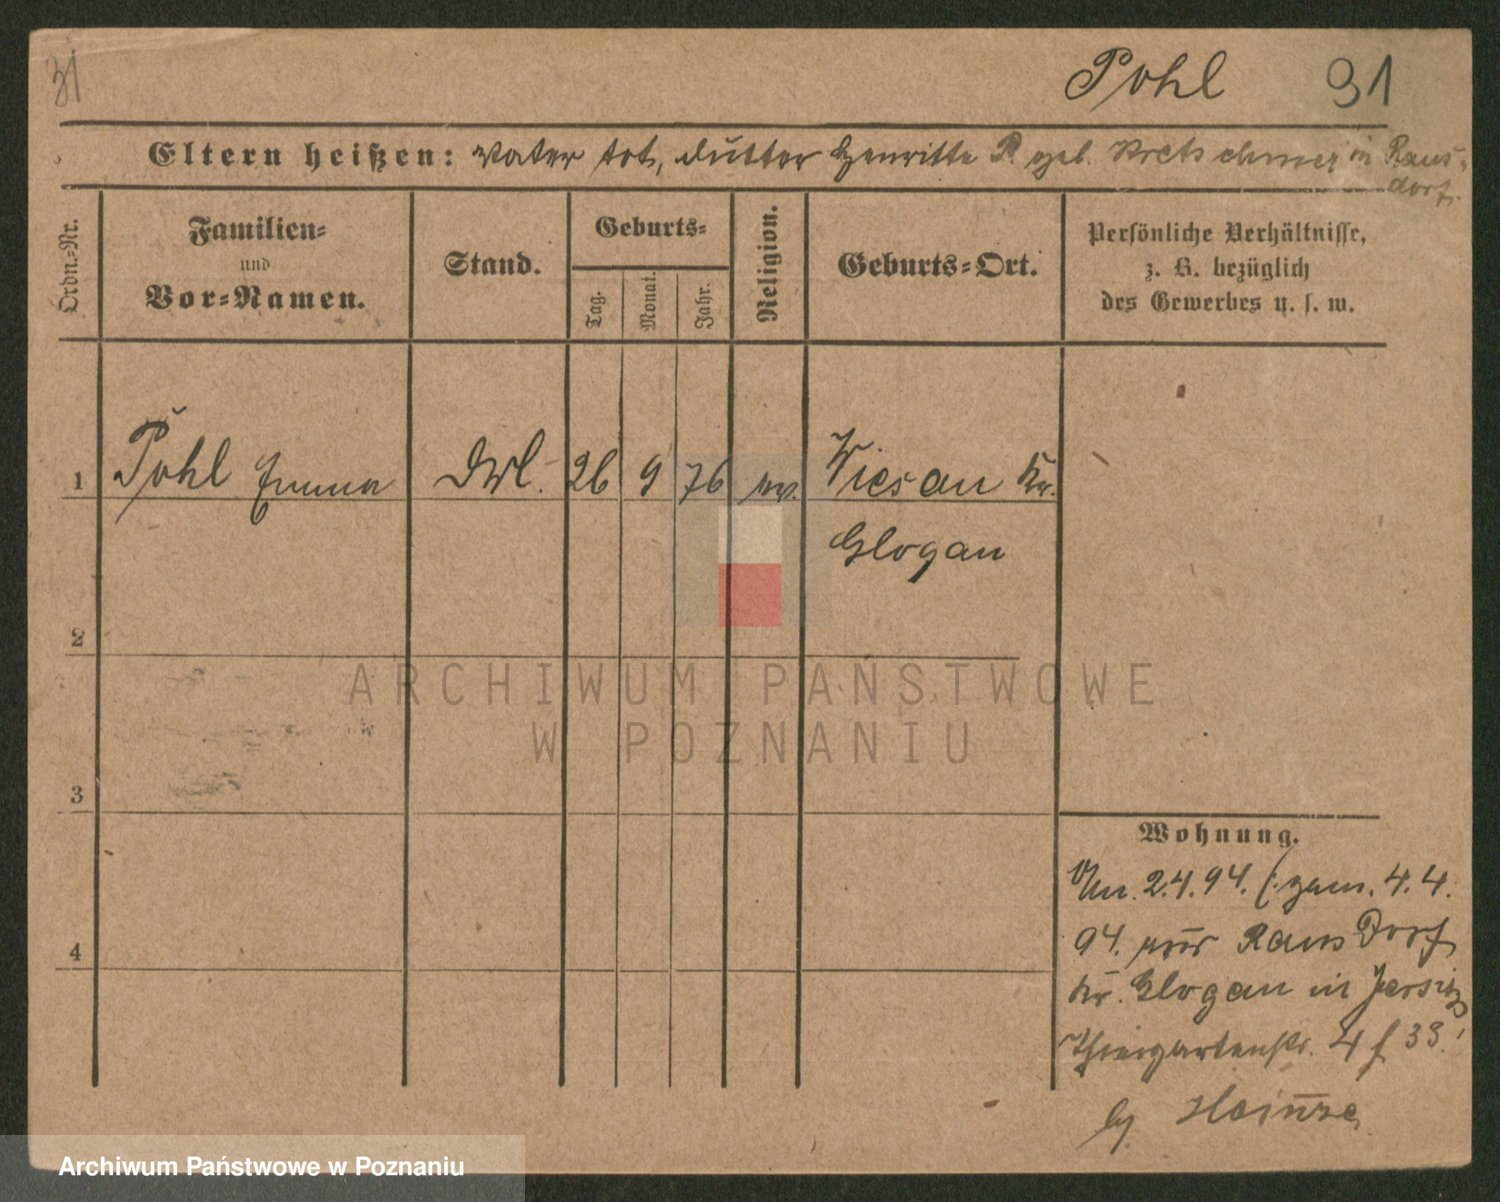 31
Pohl 91
Eltern heißen: Vater tot, Mutter Henriette P. geb. Kretschmer in Raus-
dorf.
Ordn.-Nr.
Familien-
und
Vor-Namen.
Stand.
Geburts-
Tag.
Monat.
Jahr.
Religion.
Geburts-Ort.
Persönliche Verhältnisse,
z. B. bezüglich
des Gewerbes u. s. w.
1 Pohl Emma 26 9 76 ev. Wiesau Kr.
Glogau
2
ARCHIWUM PAŃSTWOWE
W POZNANIU
3
4
Wohnung.
An. 2.4.94. (: gem. 4.4.
94. aus Rausdorf
Kr. Glogau in Jersitz
Thiergartenstr. 4 f 33.
bei Heinze
Archiwum Państwowe w Poznaniu